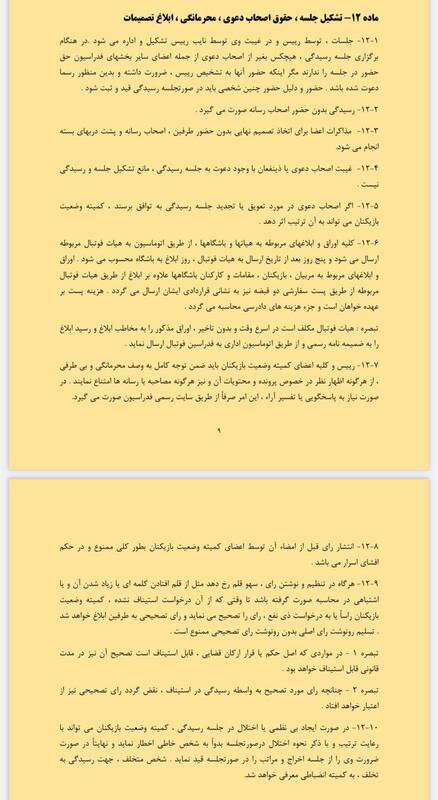 ماده ۱۲- تشکیل جلسه ، حقوق اصحاب دعوی ، محرمانگی ، ابلاغ تصمیمات
۱-۱۲- جلسات ، توسط رییس و در غیبت وی توسط نایب رییس تشکیل و اداره می شود .در هنگام
برگزاری جلسه رسیدگی ، هیچکس بغیر از اصحاب دعوی از جمله اعضای سایر بخشهای فدراسیون حق
حضور در جلسه را ندارند مگر اینکه حضور آنها به تشخیص رییس ، ضرورت داشته و بدین منظور رسما
دعوت شده باشد . حضور و دلیل حضور چنین شخصی باید در صورتجلسه رسیدگی قید و ثبت شود .
۲-۱۲- رسیدگی بدون حضور اصحاب رسانه صورت می گیرد .
۳-۱۲- مذاکرات اعضا برای اتخاذ تصمیم نهایی بدون حضور طرفین ، اصحاب رسانه و پشت دربهای بسته
انجام می شود.
۴-۱۲- غیبت اصحاب دعوی یا ذینفعان با وجود دعوت به جلسه رسیدگی ، مانع تشکیل جلسه و رسیدگی
نیست .
۵-۱۲- اگر اصحاب دعوی در مورد تعویق یا تجدید جلسه رسیدگی به توافق برسند ، کمیته وضعیت
بازیکنان می تواند به آن ترتیب اثر دهد .
۶-۱۲- کلیه اوراق و ابلاغهای مربوطه به هیاتها و باشگاهها ، از طریق اتوماسیون به هیات فوتبال مربوطه
ارسال می شود و پنج روز بعد از تاریخ ارسال به هیات فوتبال ، روز ابلاغ به باشگاه محسوب می شود . اوراق
و ابلاغهای مربوط به مربیان ، بازیکنان ، مقامات و کارکنان باشگاهها علاوه بر ابلاغ از طریق هیات فوتبال
مربوطه از طریق پست سفارشی دو قبضه نیز به نشانی قراردادی ایشان ارسال می گردد . هزینه پست بر
عهده خواهان است و جزء هزینه های دادرسی محاسبه می گردد .
تبصره : هیات فوتبال مکلف است در اسرع وقت و بدون تاخیر ، اوراق مذکور را به مخاطب ابلاغ و رسید ابلاغ
را به ضمیمه نامه رسمی و از طریق اتوماسیون اداری به فدراسین فوتبال ارسال نماید .
۷-۱۲- رییس و کلیه اعضای کمیته وضعیت بازیکنان باید ضمن توجه کامل به وصف محرمانگی و بی طرفی
، از هرگونه اظهار نظر در خصوص پرونده و محتویات آن و نیز هرگونه مصاحبه با رسانه ها امتناع نمایند . در
صورت نیاز به پاسخگویی یا تفسیر آراء ، این امر صرفاً از طریق سایت رسمی فدراسیون صورت می گیرد.
۹
۸-۱۲- انتشار رای قبل از امضاء آن توسط اعضای کمیته وضعیت بازیکنان بطور کلی ممنوع و در حکم
افشای اسرار می باشد .
۹-۱۲- هرگاه در تنظیم و نوشتن رای ، سهو قلم رخ دهد مثل از قلم افتادن کلمه ای یا زیاد شدن آن و یا
اشتباهی در محاسبه صورت گرفته باشد تا وقتی که از آن درخواست استیناف نشده ، کمیته وضعیت
بازیکنان راساً یا به درخواست ذی نفع ، رای را تصحیح می نماید و رای تصحیحی به طرفین ابلاغ خواهد شد
. تسلیم رونوشت رای اصلی بدون رونوشت رای تصحیحی ممنوع است .
تبصره ۱ - در مواردی که اصل حکم یا قرار ارکان قضایی ، قابل استیناف است تصحیح آن نیز در مدت
قانونی قابل استیناف خواهد بود .
تبصره ۲ - چنانچه رای مورد تصحیح به واسطه رسیدگی در استیناف ، نقض گردد رای تصحیحی نیز از
اعتبار خواهد افتاد .
۱۰-۱۲- در صورت ایجاد بی نظمی یا اختلال در جلسه رسیدگی ، کمیته وضعیت بازیکنان می تواند با
رعایت ترتیب و با ذکر نحوه اختلال درصورتجلسه بدواً به شخص خاطی اخطار نماید و نهایتاً در صورت
ضرورت وی را از جلسه اخراج و مراتب را در صورتجلسه قید نماید . شخص متخلف ، جهت رسیدگی به
تخلف ، به کمیته انضباطی معرفی خواهد شد.